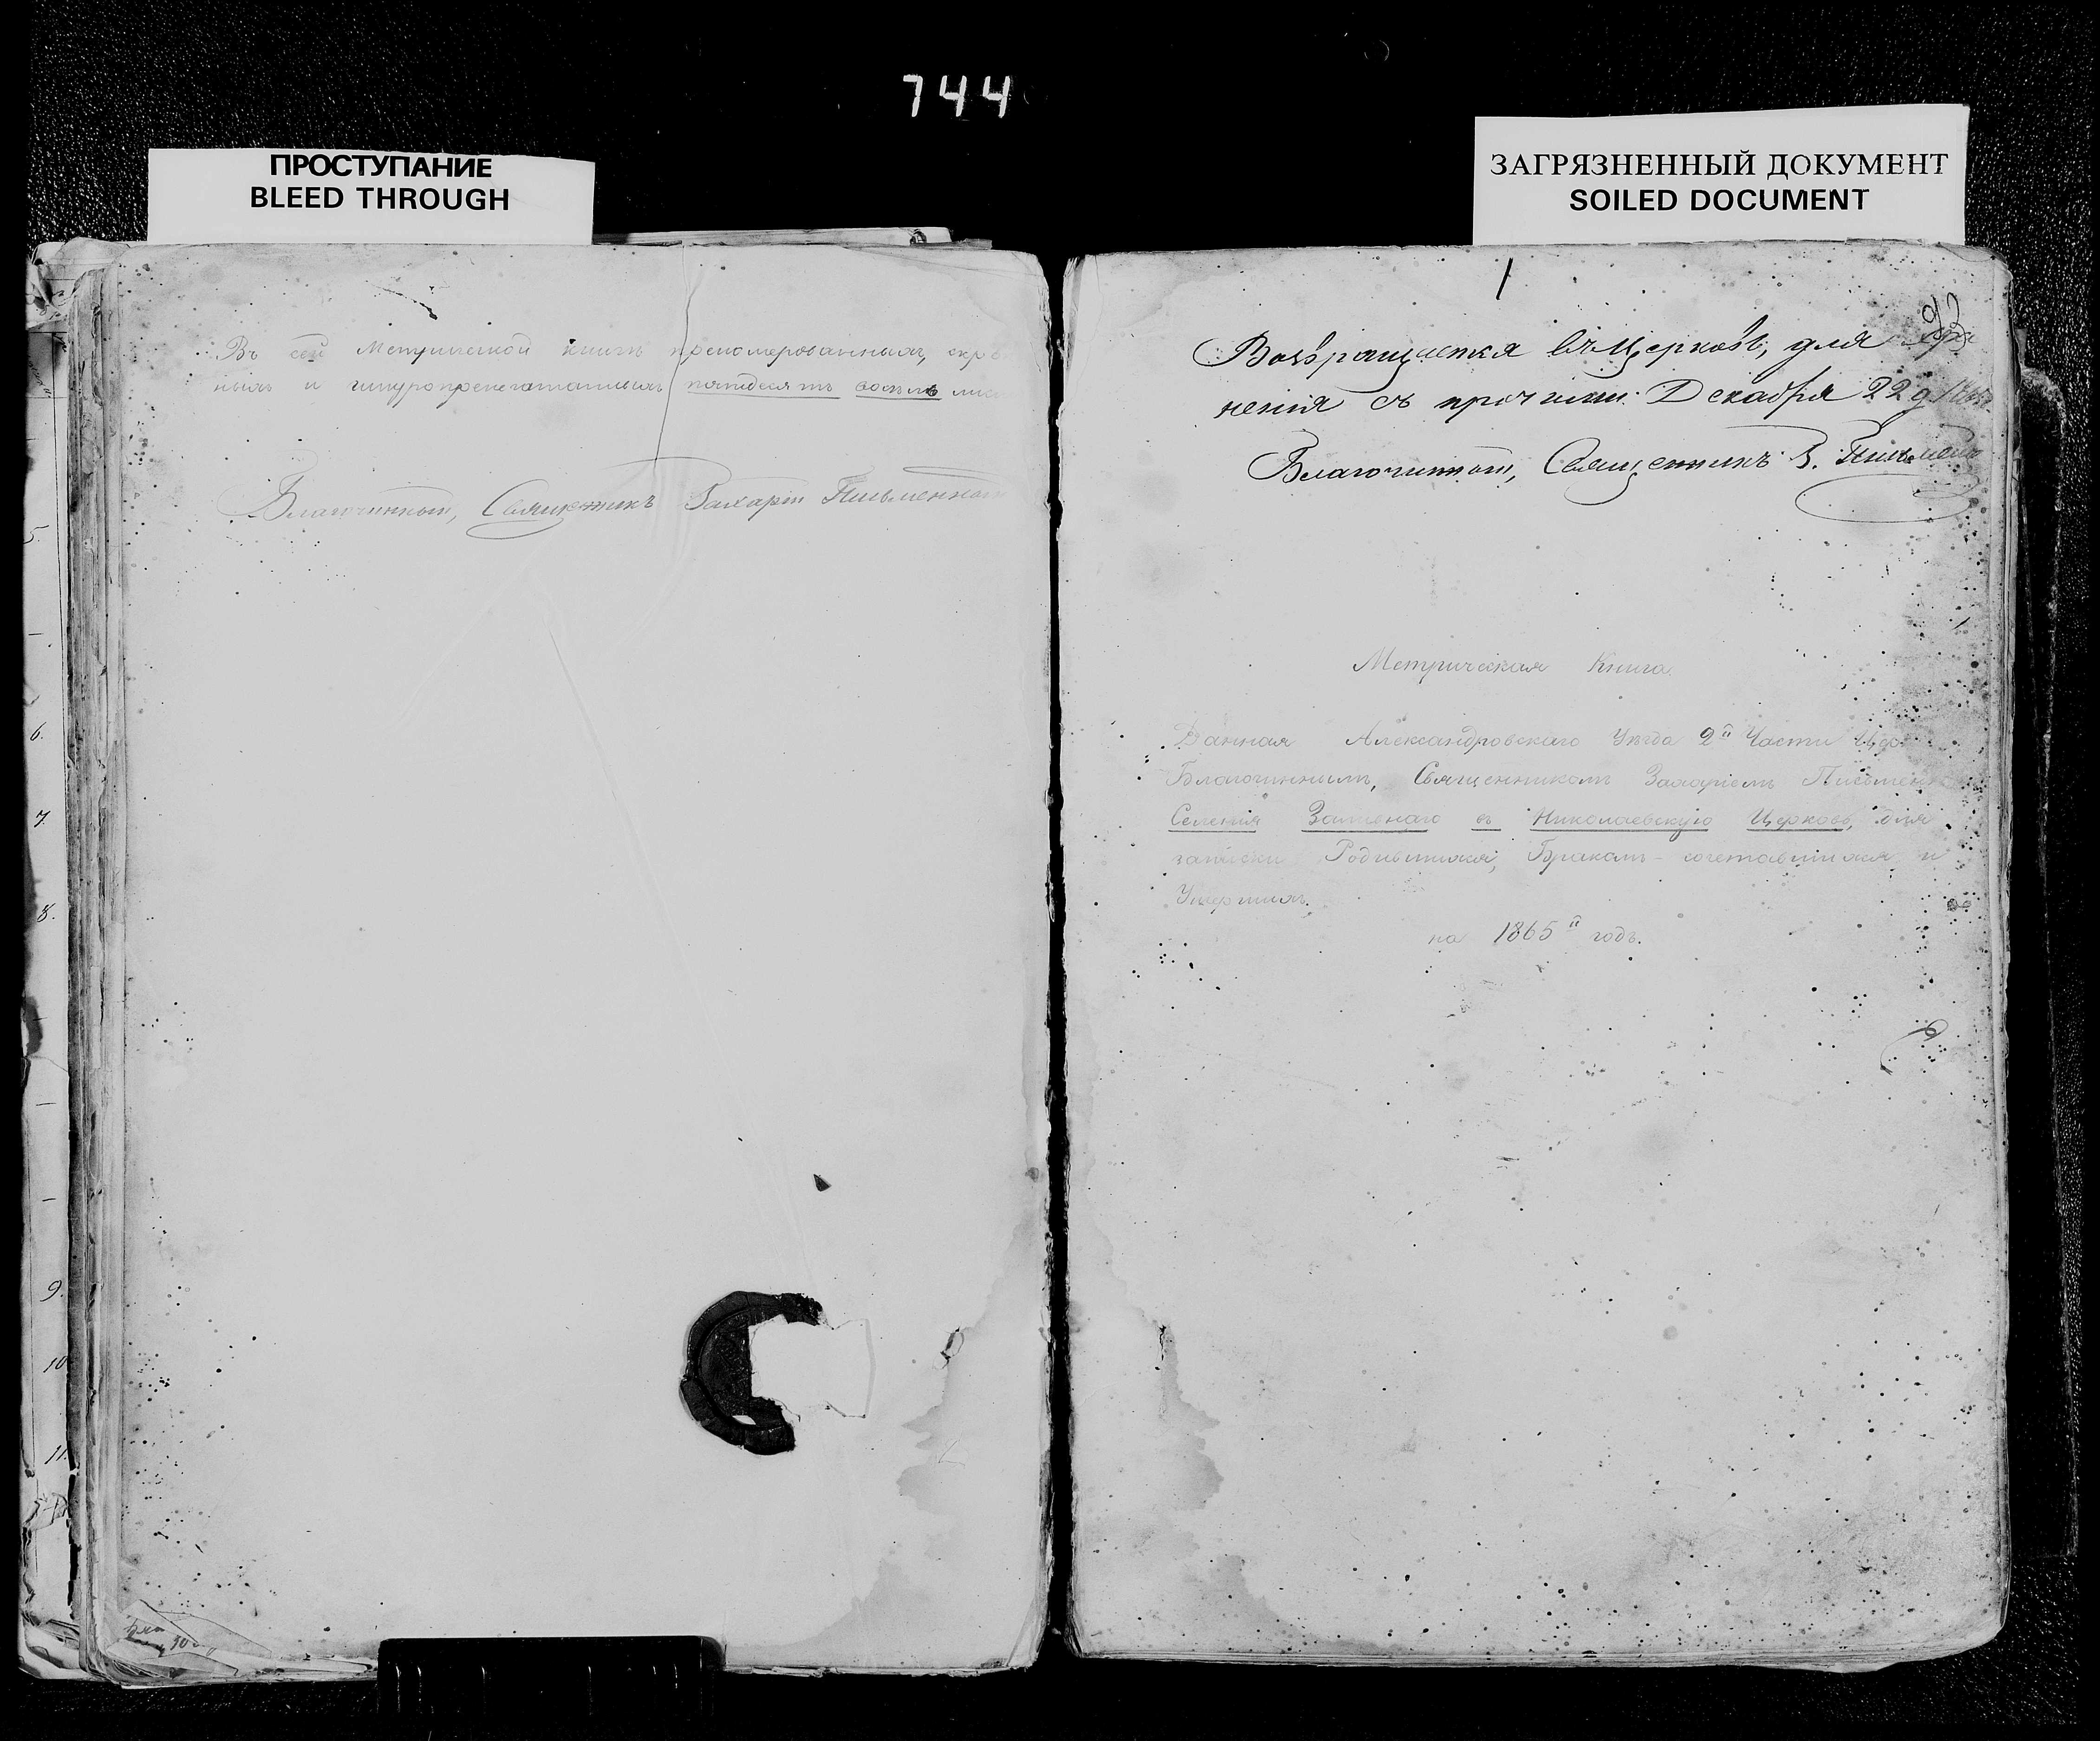 744
ПРОСТУПАНИЕ
BLEED THROUGH
ЗАГРЯЗНЕННЫЙ ДОКУМЕНТ
SOILED DOCUMENT
Въ сей Метрической книгѣ пронумерованныхъ, скрѣ
ныхъ и шнуропропечатанныхъ пятьдесятъ восемь лис
Благочинный, Священникъ Захарій Письменный
5.
6.
7.
8.
9.
10
11.
1
92
Возвращается въ Церковь, для хра
ненія съ прочими. Декабря 22 д.
Благочинный, Священникъ З. Письмен
Метрическая Книга
Данная Александровскаго Уѣзда 2й Части Цер
Благочиннымъ, Священникомъ Захаріемъ Письмен
Селенія Заливнаго въ Николаевскую Церковь, для
записки Родившихся, Бракомъ-сочетавшихся и
Умершихъ.
на 1865й годъ.